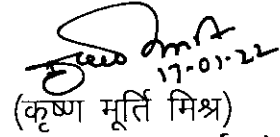 17-01-22
(कृष्ण मूर्ति मिश्र)